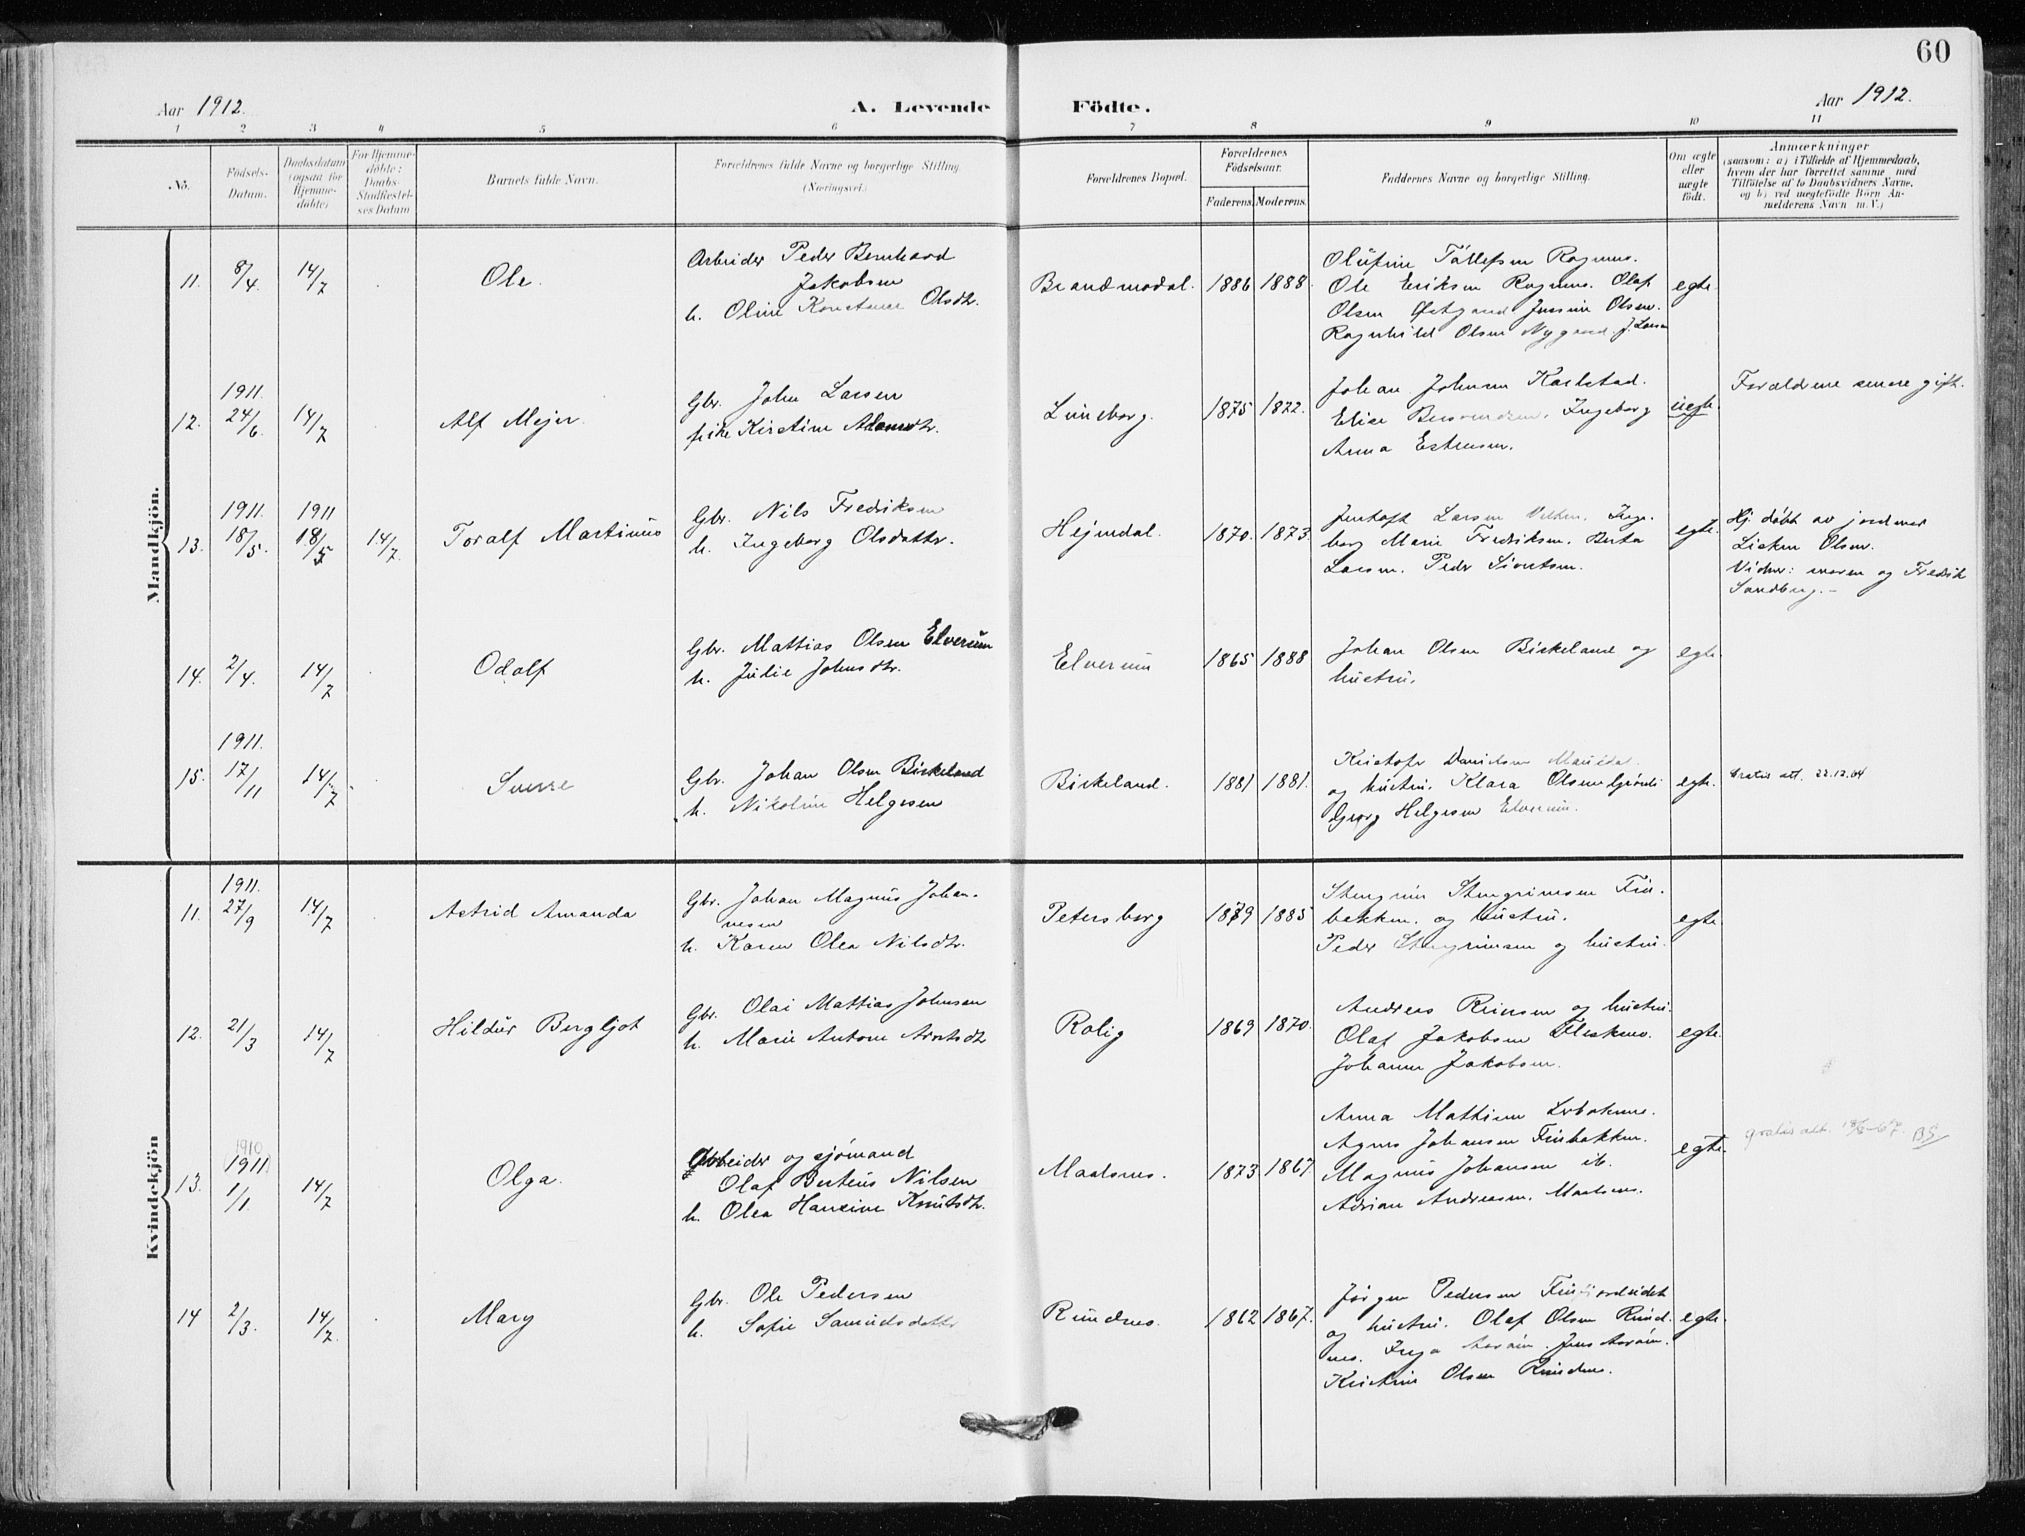 60
Aar 1912.
A. Levende Födte.
Aar 1912.
1 2 3 4 5 6 7 8 9 10 11
No.
Födsels-
Datum.
Daabsdatum
(ogsaa for
Hjemme-
döbte)
For Hjemme-
döbte:
Daabs-
Stadfæstel-
ses Datum
Barnets fulde Navn.
Forældrenes fulde Navne og borgerlige Stilling
(Næringsvei.)
Forældrenes Bopæl.
Forældrenes
Födselsaar.
Faderens. Moderens.
Faddernes Navne og borgerlige Stilling.
Om ægte
eller
uægte
födt.
Anmærkninger
(saasom: a) i Tilfælde af Hjemmedaab,
hvem der har forrettet samme, med
Tilföielse af to Daabsvidners Navne,
og b) ved uægtefödte Börn An-
melderens Navn m. V.)
Mandkjön.
11. 8/4. 14/7 Ole.
Arbeider Peder Bernhard
Jakobsen
h. Oline Konstanse Olsdtr.
Brandmodal. 1886 1888.
Olufine Tollefsen Rognnes.
Ole Eriksen Rognnes. Olaf
Olsen Østgaard Jensine Olsen.
Ragnhild Olsen Nygaard. J. Larsen
egte.
12. 1911. 24/6. 14/7 Alf Mejer.
Gbr. John Larsen
pike Kirstine Adamsdtr.
Luneborg. 1875 1872.
Johan Johnsen Karlstad.
Elise Ingeborg
Anna Estensen.
uegte.
Forældrene senere gift.
13. 1911. 18/5. 1911 18/5 14/7. Toralf Martinus
Gbr. Nils Fredriksen
h. Ingeborg Olsdatter.
Hejmdal. 1870. 1873
Jentoft Larsen Inge-
borg Marie Fredriksen. Berta
Larsen. Peder Sivertsen.
egte.
Hj. døbt av jordmor
Olsen.
Vidner: moren og Fredrik
Sandberg.-
14. 2/4. 14/7 Odolf
Gbr. Mattias Olsen Elverum
h. Julie Johnsdtr.
Elverum 1865 1888
Johan Olsen Birkeland og
hustru.
egte.
15. 1911. 17/11 14/7. Sverre
Gbr. Johan Olsen Birkeland
h. Nikoline Helgesen
Birkeland. 1881 1881.
Kristofer Danielsen
og hustru. Klara Olsen Grönli
Georg Helgesen Elverum.
egte.
Gratis att. 22.12.64
Kvindekjön
11. 1911. 27/9 14/7 Astrid Amanda
Gbr. Johan Magnus Johan-
nesen
h. Karen Olea Nilsdtr.
Petersborg 1879 1885
Stengrim Stengrimsen Fin-
bakken. og hustru.
Peder Stengrimsen og hustru.
egte.
12. 21/3 14/7 Hildur Bergljot
Gbr. Olai Mattias Johnsen
h. Marie Antone Arntsdtr
Rolig 1869 1870.
Andreas Reinsen og hustru.
Olaf Jakobsen Fleskmo.
Johanne Jakobsen.
egte.
13. 1910 1911 1/1. 14/7 Olga.
Arbeider og sjömand
Olaf Berteus Nilsen
h. Olea Hansine Knutsdtr.
Maalsnes. 1873 1867
Anna Mathisen
Agnes Johansen Finbakken.
Magnus Johansen ib.
Adrian Andreasen. Maalsnes.
egte.
gratis att. BS
14 2/3. 14/7. Mary
Gbr. Ole Pedersen
h. Sofie Samuelsdatter
Rundnes. 1862 1867.
Jørgen Pedersen Finfjordeidet
og hustru. Olaf Olsen Rund-
nes. Inga Jens
Kristine Olsen Rundnes.
egte.